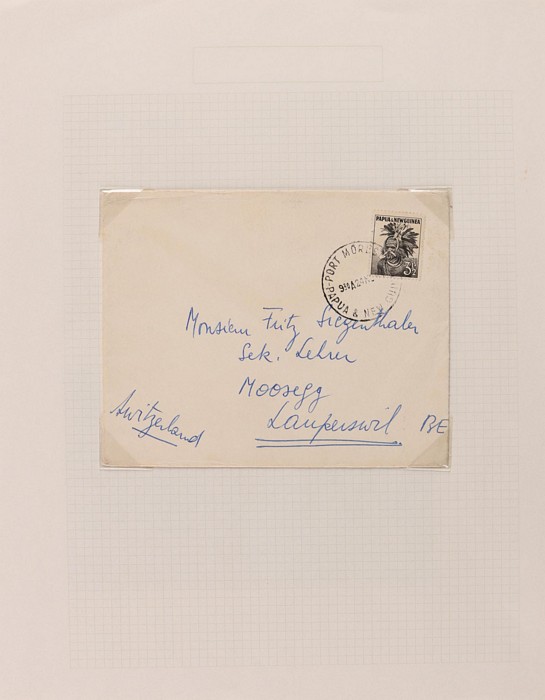 PAPUA & NEW GUINEA
PORT MORES
PAPUA & NEW GUIN
Monsieur Fritz Siegenthaler
Sek. Lehrer
Moosegg
Lauperswil BE
Switzerland